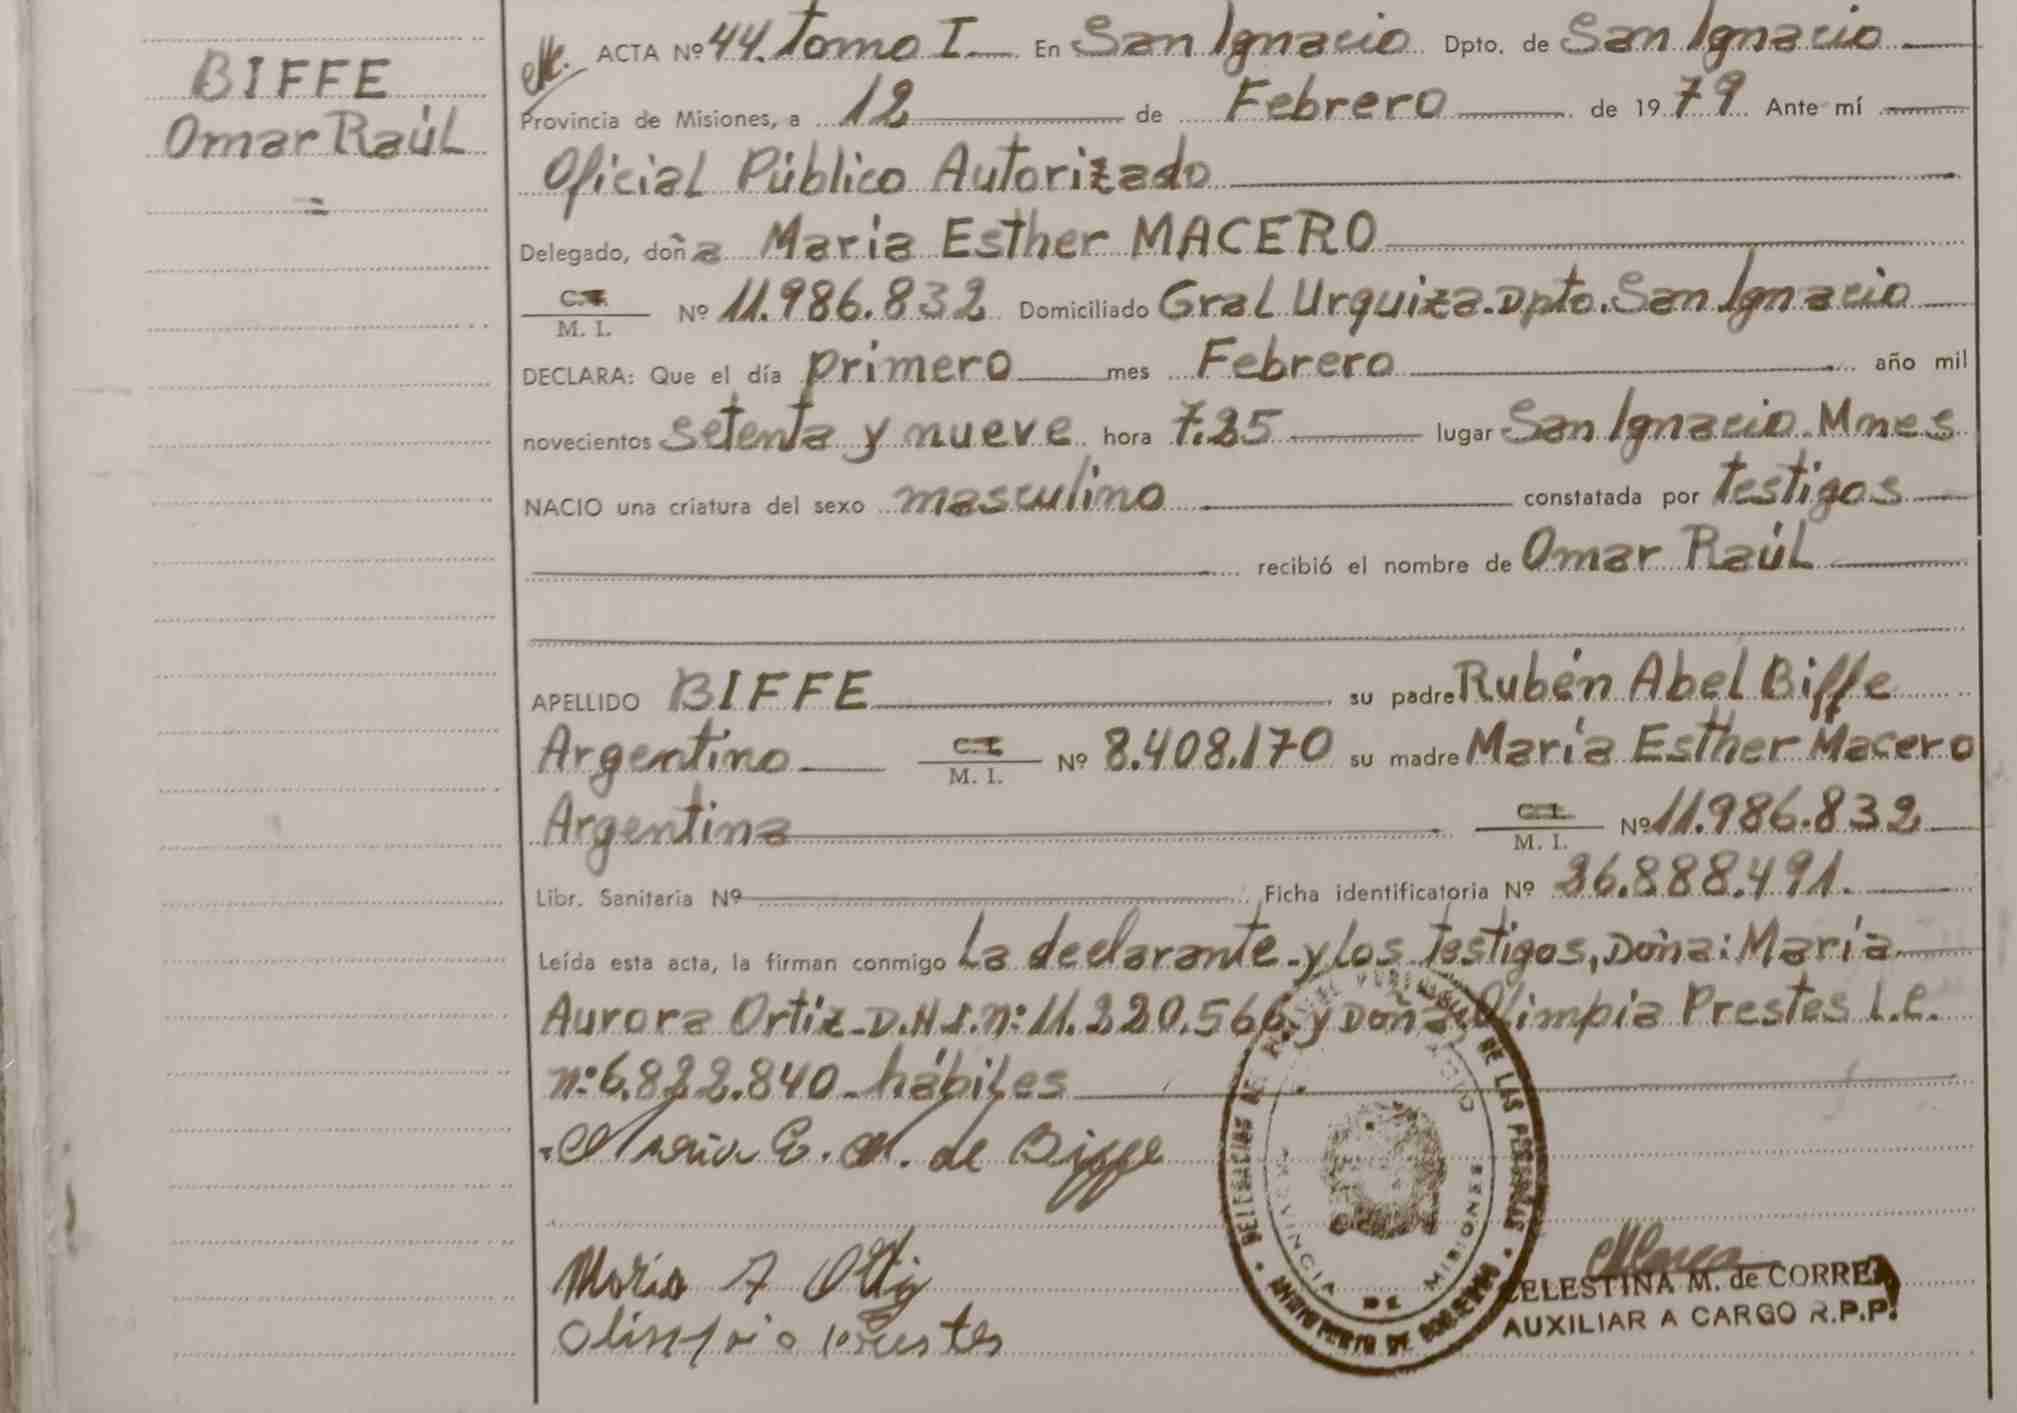 BIFFE
Omar Raúl
=
ACTA Nº 44. Tomo I. En San Ignacio Dpto. de San Ignacio
Provincia de Misiones, a 12 de Febrero de 1979 Ante mí
Oficial Público Autorizado
Delegado, doña María Esther MACERO
C.I. M. I. Nº 11.986.832 Domiciliado Gral Urquiza. Dpto. San Ignacio
DECLARA: Que el día primero mes Febrero año mil
novecientos setenta y nueve hora 7.25 lugar San Ignacio. Mnes
NACIO una criatura del sexo masculino constatada por testigos
recibió el nombre de Omar Raúl
APELLIDO BIFFE su padre Rubén Abel Biffe
Argentino C.I. M. I. Nº 8.408.170 su madre María Esther Macero
Argentina C.I. M. I. Nº 11.986.832
Libr. Sanitaria Nº Ficha identificatoria Nº 26.888.491.
Leída esta acta, la firman conmigo La declarante y los testigos, Doña: María
Aurora Ortiz - D.N.I. nº 11.220.566 y Doña Olimpia Prestes L.C.
nº 6.822.840 - hábiles
María E. M. de Biffe
María A Ortiz
Olimpia Prestes
DE LAS PERSONAS
PROVINCIA DE MISIONES
MINISTERIO DE GOBIERNO
CELESTINA M. de CORREA
AUXILIAR A CARGO R.P.P.